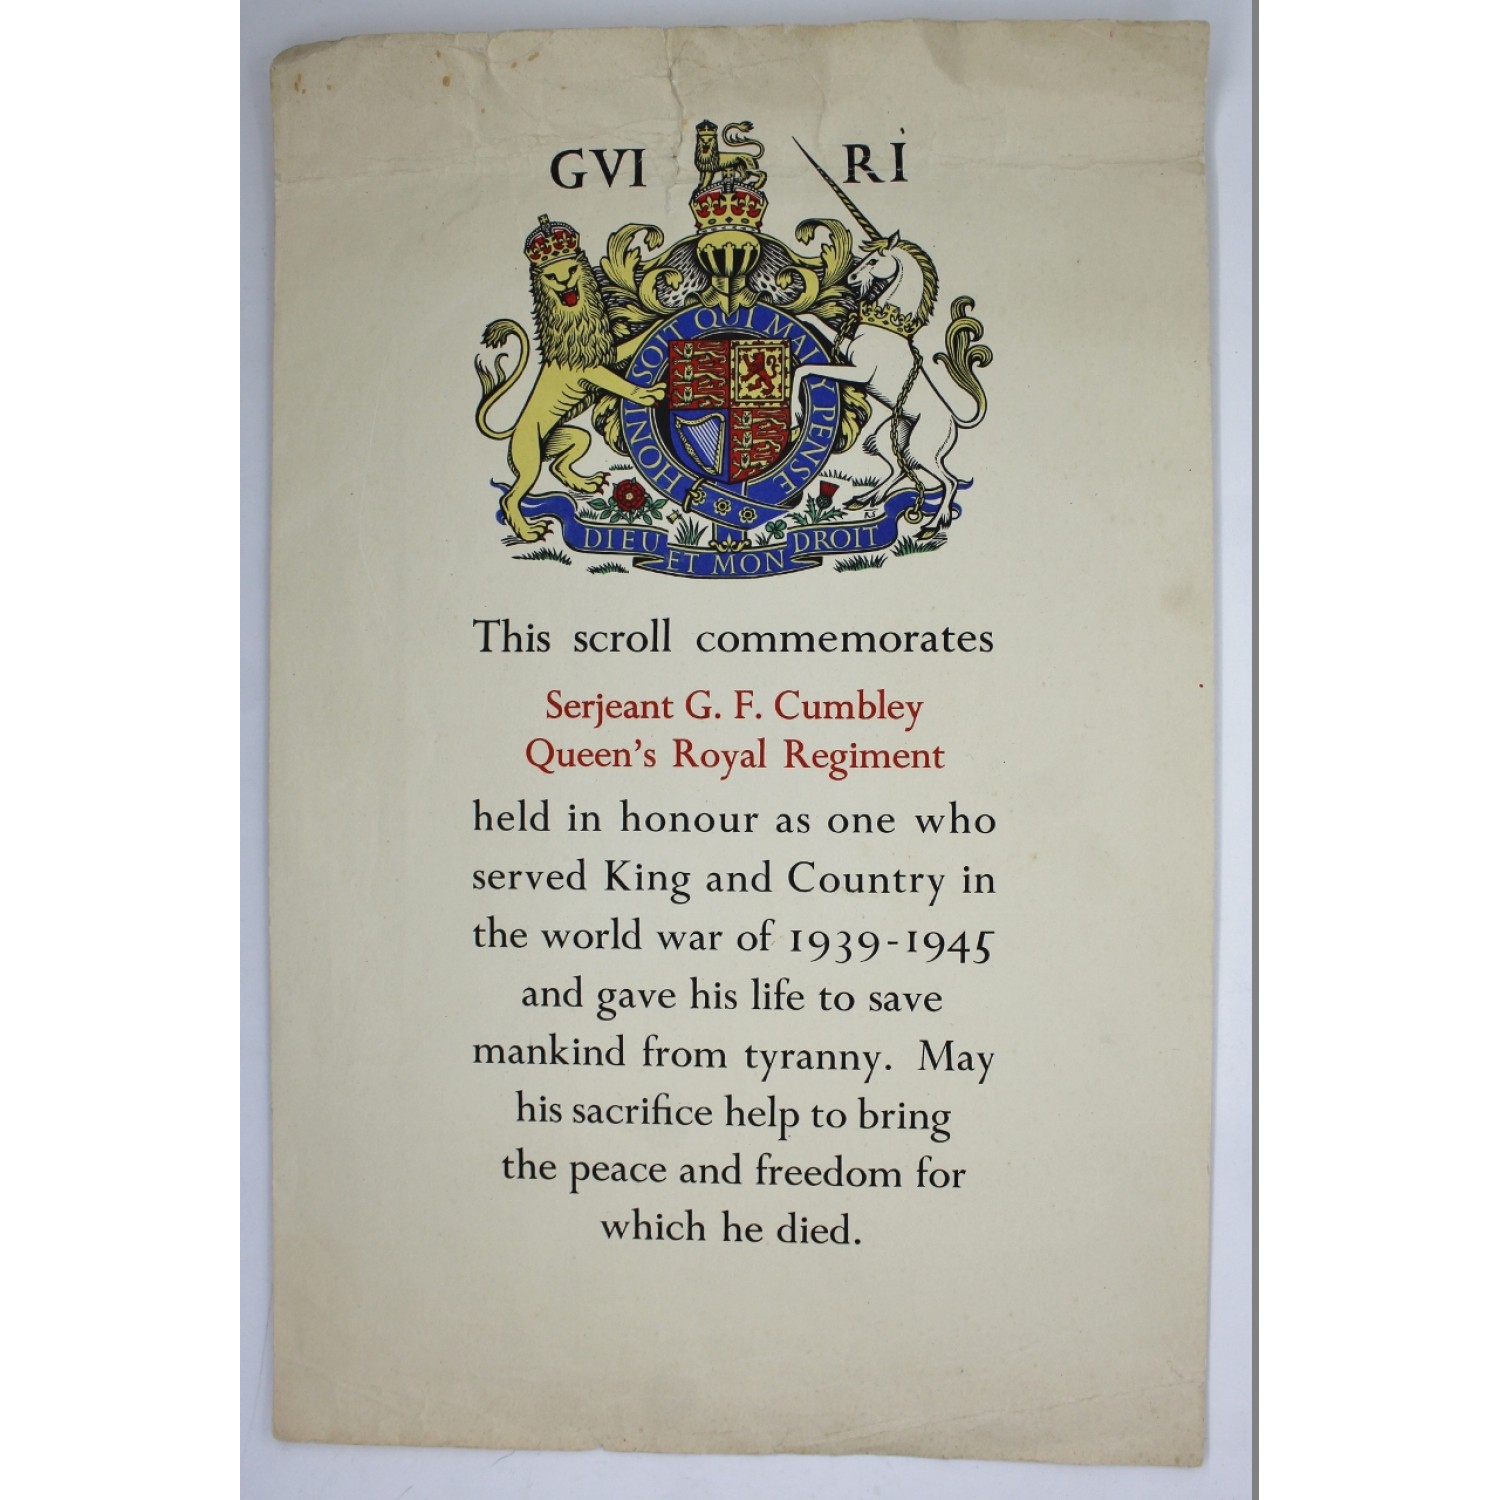 GVI RI
HONI SOIT QUI MAL Y PENSE
DIEU ET MON DROIT
RS
This scroll commemorates
Serjeant G. F. Cumbley
Queen's Royal Regiment
held in honour as one who
served King and Country in
the world war of 1939-1945
and gave his life to save
mankind from tyranny. May
his sacrifice help to bring
the peace and freedom for
which he died.